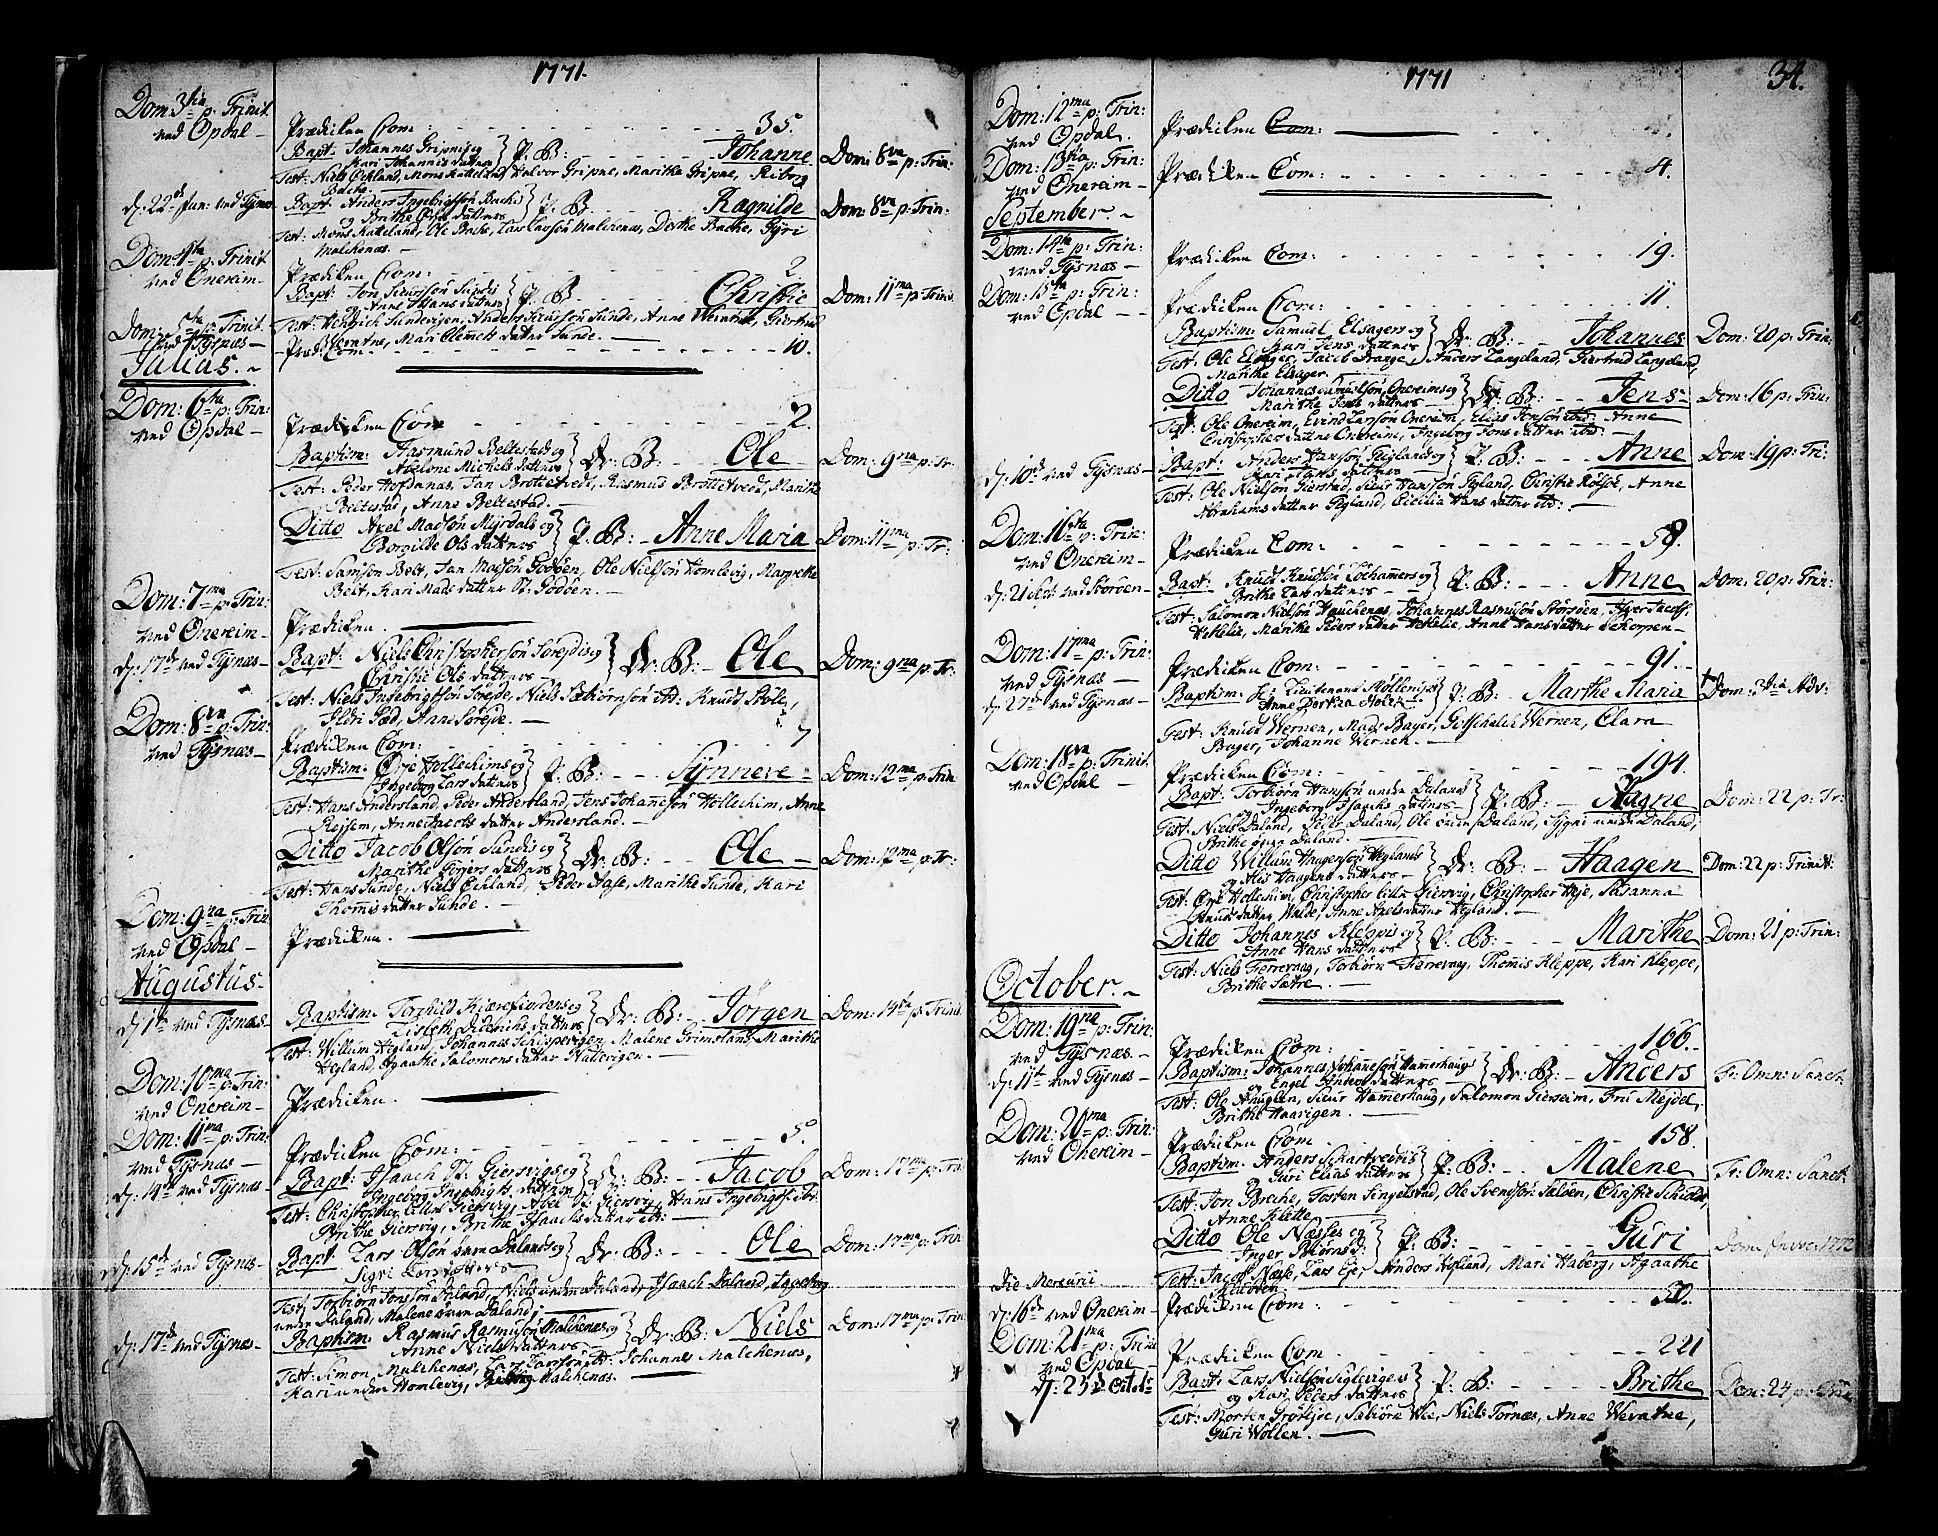 1771.
Dom 3tia p: Trinit.
ved Opdal —
Prædicken Com: 35.
Bapt: Johannes Gripnis og
Kari Johannis datters } P. B: Johanne Dom: 8va p: Trin:
Test: Niels Echland, Mons Katteland, Halvor Gripne, Marithe Gripne, Riborg
Bache.
d: 22de Jun: ved Tysnæs
Bapt: Anders Ingebrigtsøn Bachis
og Brithe Ols datters } P. B: Ragnilde Dom: 8va p: Trin:
Test: Mons Katteland, Ole Bache, Lars Larsøn Malchenæs, Dorthe Bache, Gyri
Malchenæs. —
Dom: 4ta p: Trinit
ved Onereim —
Prædicken Com: 2.
Bapt: Jon Siursøn Sundis
og Anne Hans datters } P. B: Christie Dom: 11ma p: Trin:
Test: Henrich Sundevigen, Anders Siursøn Sunde, Anne Weratne, Giertrud
Weratne, Mari Clemets datter Sunde. —
Dom: 5ta p: Trinit.
ved Tysnæs —
Præd: Com: 10.
Julius. ~
Dom: 6ta p: Trin:
ved Opdal —
Prædicken Com 2.
Baptism: Aasmund Beltestads og
Abelone Michels datters } Dr: B: Ole Dom: 9na p: Tr:
Test: Peder Hofdanæs, Jan Brottetvedt, Rasmus Brottetvedt, Marithe
Beltestad, Anne Beltestad.
Ditto Axel Madsøn Myrdals og
Borgilde Ols datters } P. B: Anne Maria Dom: 11ma p: Tr:
Test: Samson Belt, Jan Madsøn Godøen, Ole Nielsøn Homlevig, Margrethe
Belt, Kari Mads datter Godøen. —
Dom: 7ma p: Trin:
ved Onereim —
Prædicken.
d: 17de ved Tysnæs —
Bapt: Niels Christophersøn Sørejdis og
Christie Ols datters } Dr: B: Ole Dom: 9na p: Tr:
Test: Niels Ingebrigtsøn Søreide, Niels Sæbiørnsøn ibd: Knudt Støle,
Ildri Sæd, Aani Søreide. —
Dom: 8va p: Trin:
ved Tysnæs —
Prædicken Com: 7
Baptism: Orje Hollechims og
Ingeborg Lars datters } P. B: Synneve Dom: 12ma p: Trin
Test: Hans Andersland, Peder Andersland, Jens Johannesøn Hollechim, Anne
Reisem, Anne Jacobs datter Andersland. —
Ditto Jacob Olsøn Sundis og
Marithe datters } Dr: B: Ole Dom: 12ma p: Tr:
Test: Hans Sunde, Niels Echland, Peder Aase, Marithe Sunde, Kari
Thomis datter Sunde. —
Dom: 9na p: Trin
ved Opdal —
Prædicken.
Augustus. ~
d: 1te ved Tysnæs —
Baptism. Torkild Kjærefiordens og
Lisbeth Didrichs datters } Dr: B: Jørgen Dom: 14ta p: Trinit.
Test: Willum Hegland, Johannes Schipsevigen, Malene Grimsland, Marithe
Hegland, Agaathe Salomons datter Nubevigen. —
Dom: 10ma p: Trin:
ved Onereim —
Prædicken.
Dom: 11ma p: Trin:
ved Tysnæs —
Prædicken Com: 5.
d: 14de ved Tysnæs —
Bapt: Isaach Giersvigs og
Ingeborg Ingebrigts datters } Dr: B: Jacob Dom: 17ma p: Trin
Test: Christopher Giersvig, Abel Giersvig, Hans Ingebrigts. ibd:
Brithe Giersvig, Brithe Isaachs datter ibd: —
d: 15de ved Tysnæs —
Bapt: Lars Olsøn oven Dalands og
Sigri datters } Dr: B: Ole Dom: 17ma p: Trin
Test: Torbiørn Jonsøn Daland, Niels under Daland, Isaach Daland, Ingeborg
under Daland, Malene oven Daland. —
d: 17de ved Tysnæs —
Baptism. Rasmus Rasmusøn Malchenæs og
Anne Niels datters } Dr: B: Niels Dom: 17ma p: Trin
Test: Simon Malchenæs, Lars Larsøn ibd: Johannes Malchenæs,
Kari under Homlevig, Malchenæs. —
1771
34.
Dom: 12ma p: Trin:
ved Opdal.
Prædicken Com:
Dom: 13tia p: Trin:
ved Onereim —
Prædicken Com: 4.
September. ~
Dom: 14ta p: Trin:
ved Tysnæs —
Prædicken Com: 19.
Dom: 15ta p: Trin:
ved Opdal —
Prædicken Com: 11
Baptism: Samuel Elsagers og
Kari Jens datters } Dr: B: Johannes Dom: 20 p: Trin:
Test: Ole Elsager, Jacob Drange, Anders Langeland, Giertrud Langeland,
Marithe Elsager.
Ditto Johannes Knudtsøn Onereims og
Marithe Jens datters } Dr: B: Jens Dom: 16 p: Trin:
Test: Ole Onereim, Eivind Larsøn Onereim, Elias Jonsøn ibd: Anne
Christophers datter Onereim, Ingeborg Jons datter ibd: —
d: 10de ved Tysnæs —
Bapt: Anders Hansøn Heglands og
Kari Hans datters } P. B: Anne Dom: 19 p: Tri:
Test: Ole Nielsøn Gierstad, Siur Hansøn Hegland, Christie Rølsøe, Anne
Abrahams datter Hegland, Cecilia Hans datter ibd: —
Dom: 16ta p: Trin:
ved Onereim —
Prædicken Com: 59.
d: 21 Sept: ved Storøen —
Bapt: Knudt Knudsøn Lochammers og
Brithe Lars datters } P. B: Anne Dom: 20 p: Trin:
Test: Salomon Nielsøn Hauchenæs, Johannes Rasmusøn Storsøen, Iver Jacobs.
Hethelie, Marithe Peders datter Hethelie, Anne Hans datter Schorpen —
Dom: 17ma p: Trin:
ved Tysnæs —
Prædicken Com: 91.
d: 27de ved Tysnæs —
Baptism: Hr: Lieutenant Møllers og
Anne Dorthea Holch } P. B: Marthe Maria †Dom: 3tia Adv:
Test: Knud Wernen, Mads Bager, Gitschalch Wernen, Clara
Bager, Johanne Wernek. —
Dom: 18va p: Trinit.
ved Opdal —
Prædicken Com: 194.
Bapt: Torbiørn Hansøn under Daland
Ingeborg Isaachs datters } P. B: Aagne Dom: 22 p: Tr:
Test: Niels Daland, Peder Daland, Ole oven Daland, Sygni under Daland,
Brithe oven Daland.
Ditto Willum Haagensøn Heglands
og Alis Haagens datters } Dr: B: Haagen Dom: 22 p: Trinit:
Test: Orje Hollechim, Christopher Giersvig, Christopher Heje, Susanna
Knuds datter Walde, Anne Axels datter Hegland. —
Ditto Johannes Kleppis og
Anne Hans datters } P. B: Marithe Dom: 21 p: Trin:
Test: Niels Færrevaag, Torbiørn Færrevaag, Thomis Kleppe, Kari Kleppe,
Brithe Sætre. —
October. ~
Dom: 19na p: Trin:
ved Tysnæs. —
Prædicken Com: 166.
d: 11te ved Tysnæs —
Baptism: Johannes Johannesøn Hammerhaug
Engel datters } Dr: B: Anders Fr: Omn: Sanct.
Test: Ole Anuglen, Siur Hammerhaug, Salomon Gierseim, Fru Mejdel,
Brithe Haarigen. —
Dom: 20ma p: Trin:
ved Onereim —
Prædicken Com 158.
Baptism. Anders Schartvedtis
og Guri Elias datters } P. B: Malene Fr: Omn: Sanct.
Test: Jon Breche, Tosten Singelstad, Ole Svendsøn Saløen, Christie
Anne Klette.
Ditto Ole Næsses og
Inger Biørns d: } P. B: Guri Dom: 1772
Test: Jacob Næsse, Lars Eje, Anders Hofland, Mari Haberg, Agaathe
Die Mercurii
d: 16de ved Onereim —
Prædicken Com: 50.
Dom: 21ma p: Trin:
ved Opdal —
Prædicken Com 221
d: 23de Octobr
Bapt: Lars Nielsøn Siglevigens
og Kari Peders datters } P. B: Brithe Dom: 24 p: Trin
Test: Morten Grøtjøe, Sæbiørn Wee, Niels Tornæs, Anne Weratne,
Guri Wollen. —